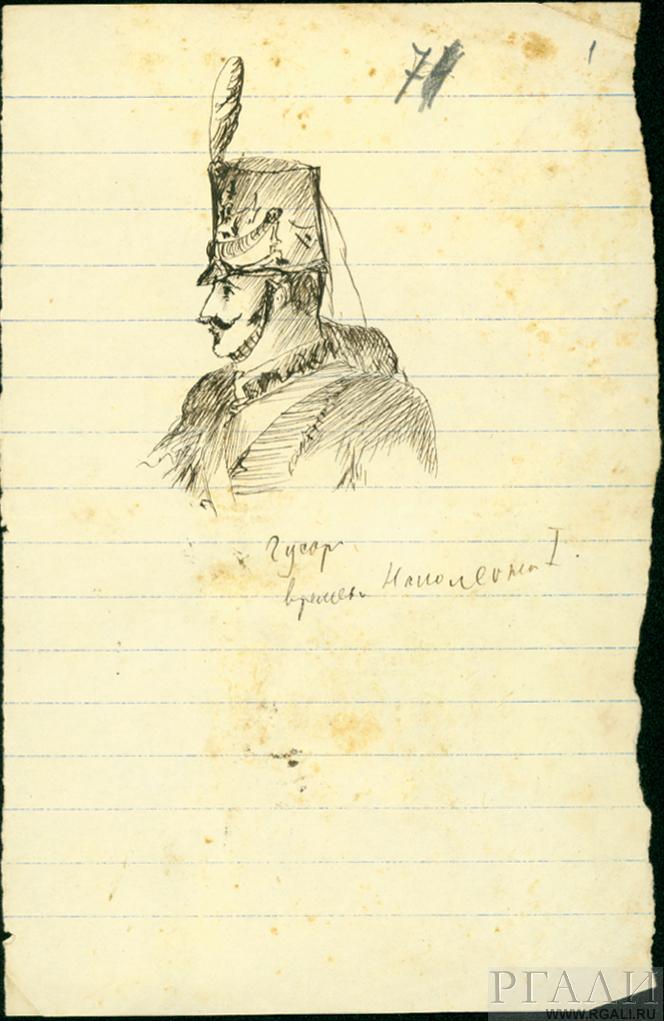 7
1
Гусар
времен Наполеона I.
РГАЛИ
WWW.RGALI.RU